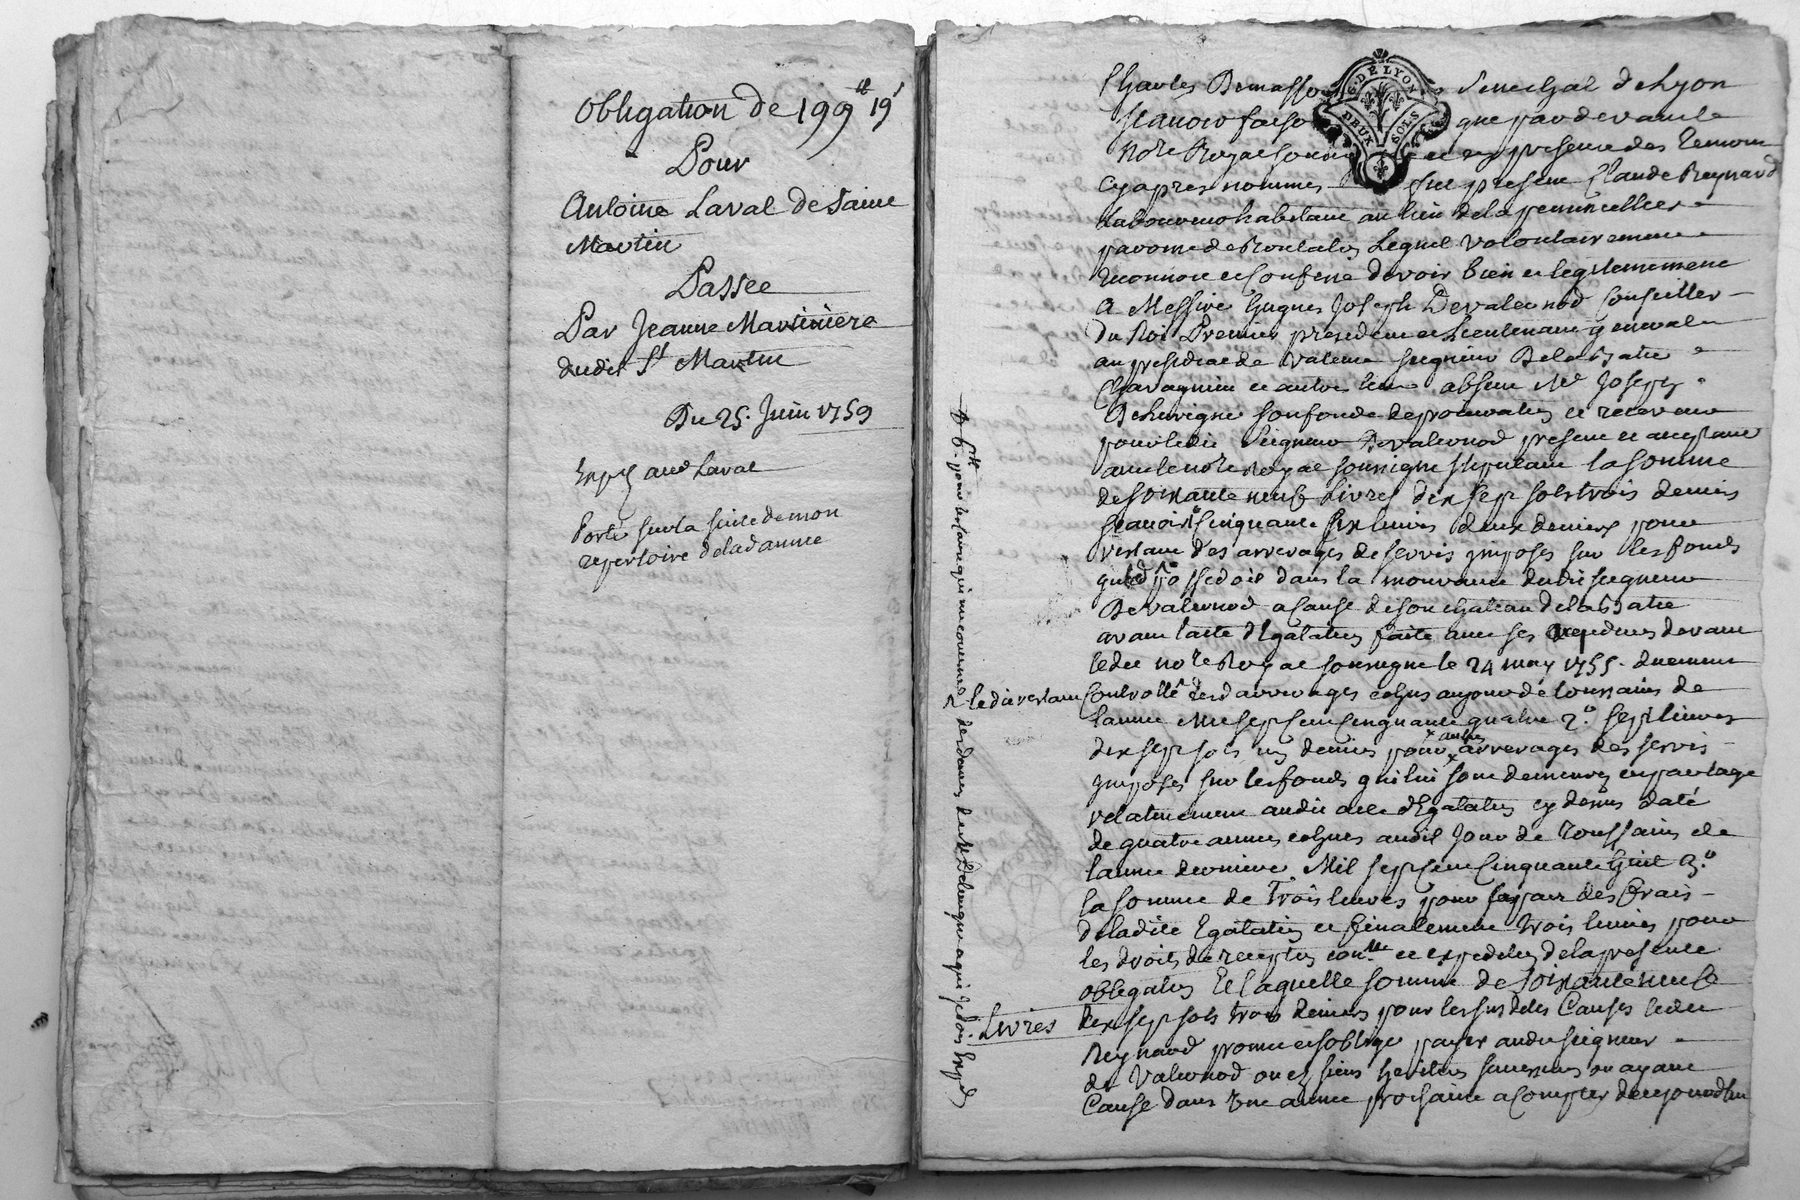 Obligation de 199ᵗᵗ 19ˢ
Pour
Antoine Laval de Saint
Martin
Passée
Par Jeanne Martiniere
dudit Sᵗ Martin
Du 25. Juin 1759
Exp. aud Laval
Porté sur la suite de mon
repertoire de lad annee
G. DE LYON
DEUX SOLS
Charles Demasso Senechal de Lyon
scavoir faiso que par devant le
Noʳᵉ Royal sousig et en presence des temoins
cy apres nommes fut present Claude Reynard
laboureur habitant au lieu de la
paroisse de lequel volontairement
reconnoit et confesse devoir bien et legitimement
a Messire Hugues Joseph Devalernod Conseiller
du Roi Premier president et Lieutenant general
au presidial de Valence seigneur De la Batie
et autres lieux absent Mᵉ Joseph
son fondé de procuration et receveur
pour ledit Seigneur Devalernod present et acceptant
avec le noʳᵉ Royal soussigné stipulant la somme
de soixante neuf Livres dix sept sols trois deniers
scavoir cinquante six livres deux deniers pour
restant des arrerages de servis imposes sur les fonds
qu'il possedoit dans la mouvance dudit seigneur
Devalernod a cause de son chateau de la Batie
avant l'acte d'Egalation faite avec ses devant
ledit noʳᵉ Royal soussigné le 24 may 1755. duement
ledit restant Controllé desd arrerages echus au jour de toussaints de
l'annee Mil sept cent cinquante quatre 2.º sept livres
dix sept sols un deniers pour autres arrerages des servis
imposes sur les fonds qui lui sont demeures en partage
relativement audit acte d'Egalation cy dessus daté
de quatre annees echues audit Jour de Toussaints de
l'annee derniere Mil sept cent Cinquante huit 3.º
la somme de trois livres pour sa part des frais
de ladite Egalation et finalement trois livres pour
les droits de reception conˡˡᵉ et expedition de la presente
obligation Et laquelle somme de soixante neuf
Livres dix sept sols trois deniers pour les susdites Causes ledit
Reynard promet et s'oblige payer audit seigneur
de Valernod ou es siens heritiers successeurs ou ayant
Cause dans une annee prochaine a compter de ce jourd'hui